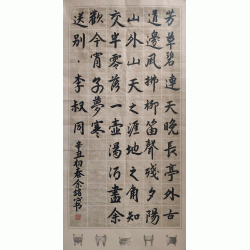 芳草碧連天晚長亭外古
道邊風拂柳笛聲殘夕陽
山外山天之涯地之角知
交半零落一壺濁酒盡余
歡今宵別夢寒
送別·李叔同
辛丑初春余書